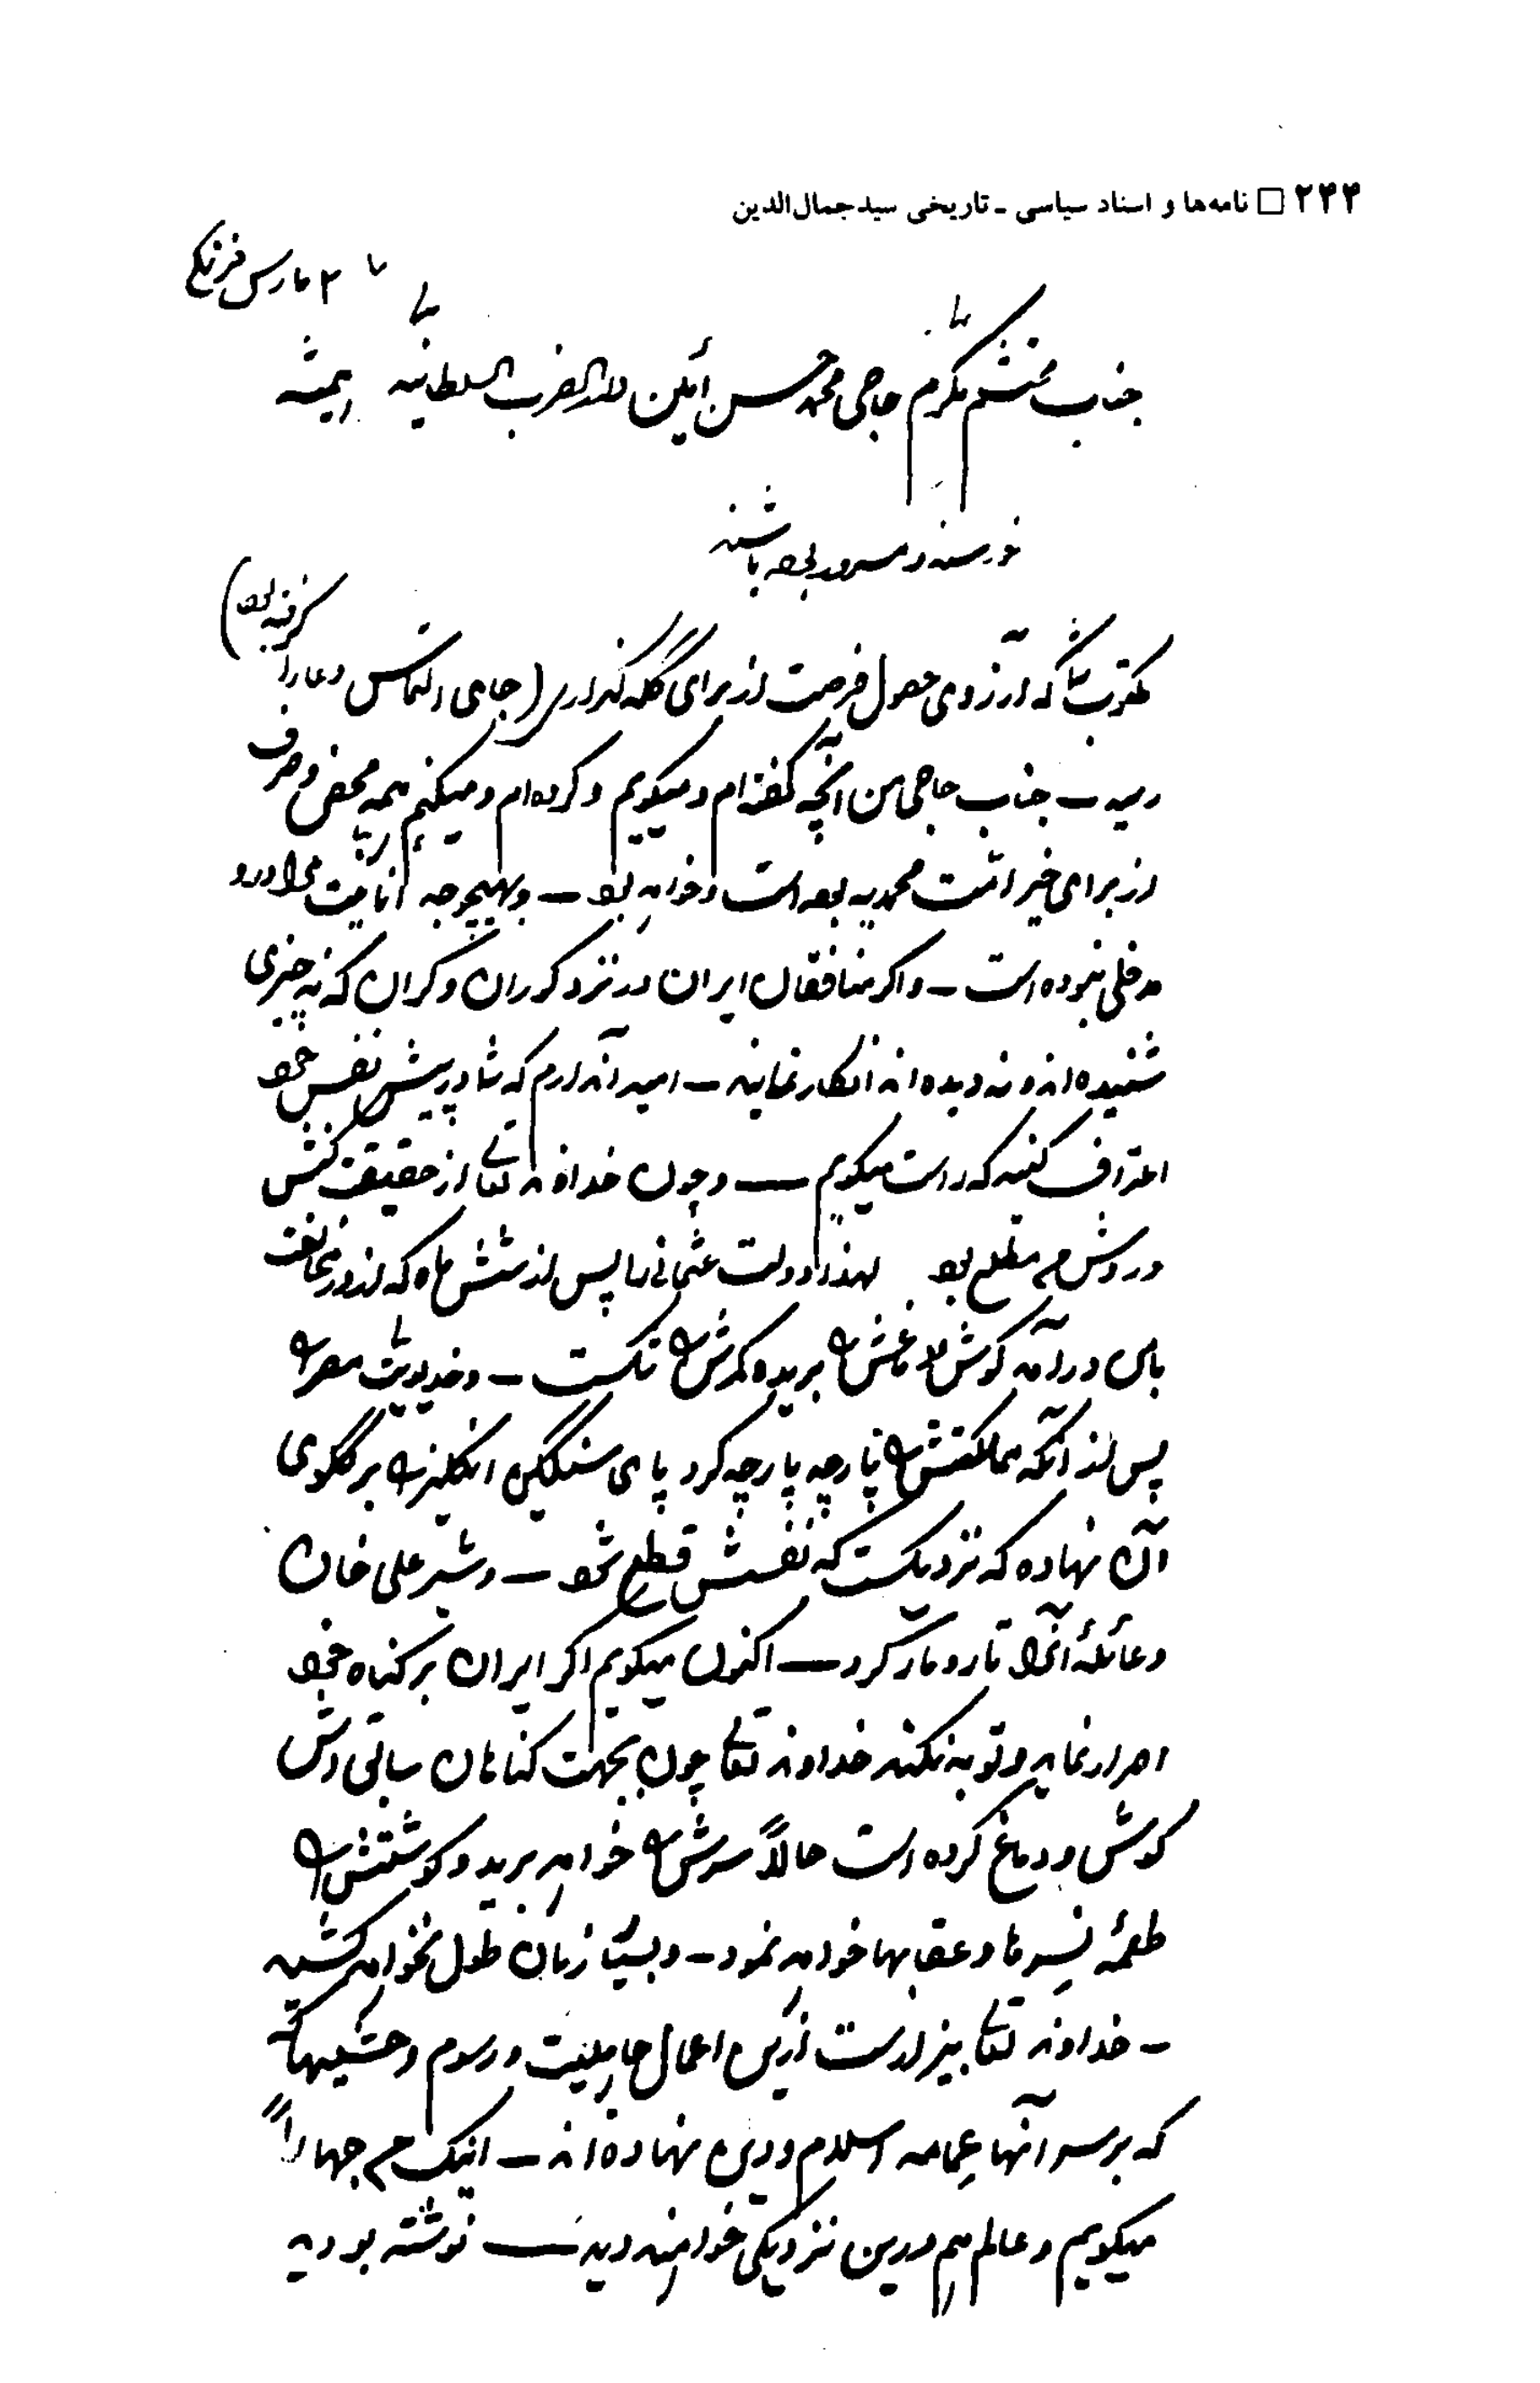 ۲۴۴ □ نامه‌ها و اسناد سیاسی - تاریخی سید جمال‌الدین
۲ مارس فرنگی
جناب محتشم مکرم حاجی محمد حسن امین دارالضرب السلطانیه همیشه
خورسند و مسرور بوده باشند
مکتوب شما که آرزوی حصول فرصت از برای گله گذاری (جای التماس دعا را گرفته بود)
رسید — جناب حاجی من آنچه گفته‌ام و میگویم و کرده‌ام و میکنم همه محض و صرف
از برای خیر امت محمدیه بوده است و خواهد بود — و بهیچوجه انانیت مرا در او
مدخلی نبوده است — و اگر منافقان ایران در نزد کوران و کران که نه چیزی
شنیده‌اند و نه دیده‌اند انکار نمایند — امید آن دارم که شما در پیش نفس خود
اعتراف کنید که راست میگویم — و چون خداوند تعالی از حقیقت کنش
و روش من مطلع بود لهذا دولت عثمانی را پس از شش ماه که از در مخالفت
با من درآمد گوش و دماغش را برید و کمرش را شکست — و خدیویت مصر را
پس از آنکه مملکتش را پارچه پارچه کرد پای سنگین انگلیز را بر گلوی
آن نهاده که نزدیکست که نفسش قطع شود — و شیر علی خان
و عائلهٔ آنرا تار و مار کرد — اکنون میگویم اگر ایران بر گناه خود
اصرار نماید و توبه نکند خداوند تعالی چون بجهت گناهان سابق اش
گوش و دماغ کرده است حالاً سرش را خواهد برید و گوشتش را
طعمهٔ نسرها و عقابها خواهد نمود — و بسیار زمان طول نخواهد کشید
— خداوند تعالی بیزار است ازین اعمال جاهلیت و رسوم وحشیها که
که بر سر آنها عمامه اسلام و دین نهاده‌اند — اینک من جهاراً
میگویم و عالم هم درین نزدیکی خواهند دید — نوشته بودید